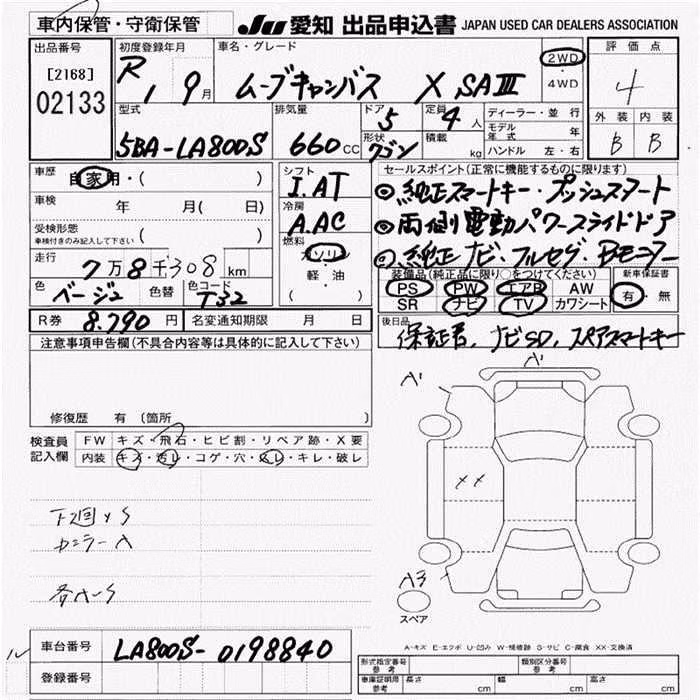 車内保管・守衛保管 JU 愛知 出品申込書 JAPAN USED CAR DEALERS ASSOCIATION
出品番号 [2168] 02133
初度登録年月 R 1 9月
車名・グレード ムーブキャンバス X SAⅢ
2WD・4WD
評価点 4
外装 内装 B B
型式 5BA-LA800S
排気量 660cc
ドア 5 形状 ワゴン
定員 4人 積載 kg
ディーラー・並行
モデル年式 年
ハンドル 左・右
車歴 自家用・( )
車検 年 月( 日)
受検形態 車検付きのみ記入して下さい ( )
走行 7万8千308km
色 ベージュ 色替 色コード T32
シフト I.AT
冷房 A.AC
燃料 ガソリン 軽・油 ( )
セールスポイント(正常に機能するものに限ります)
◎純正スマートキー・プッシュスタート
◎両側電動パワースライドドア
◎純正ナビ・フルセグ・Bモニター
装備品(純正品に限り○をつけてください) 新車保証書
PS PW エアB AW 有・無
SR ナビ TV カワシート
R券 8.790円 名変通知期限 月 日
後日品 保証書、ナビSD、スペアスマートキー
注意事項申告欄(不具合内容等は具体的に記入して下さい)
修復歴 有 (箇所 )
検査員記入欄 FW キズ・飛石・ヒビ割・リペア跡・X要
内装 キズ・汚レ・コゲ・穴・スレ・キレ・破レ
A' A'
XX
下廻りS
カニラーA
各A-S
A3
スペア
A-キズ E-エクボ U-凹み W-補修跡 S-サビ C-腐食 XX-交換済
車台番号 LA800S-0198840
登録番号
型式指定番号 参考 類別区分番号 参考
車庫証明用 参考 長さ cm 幅 cm 高さ cm